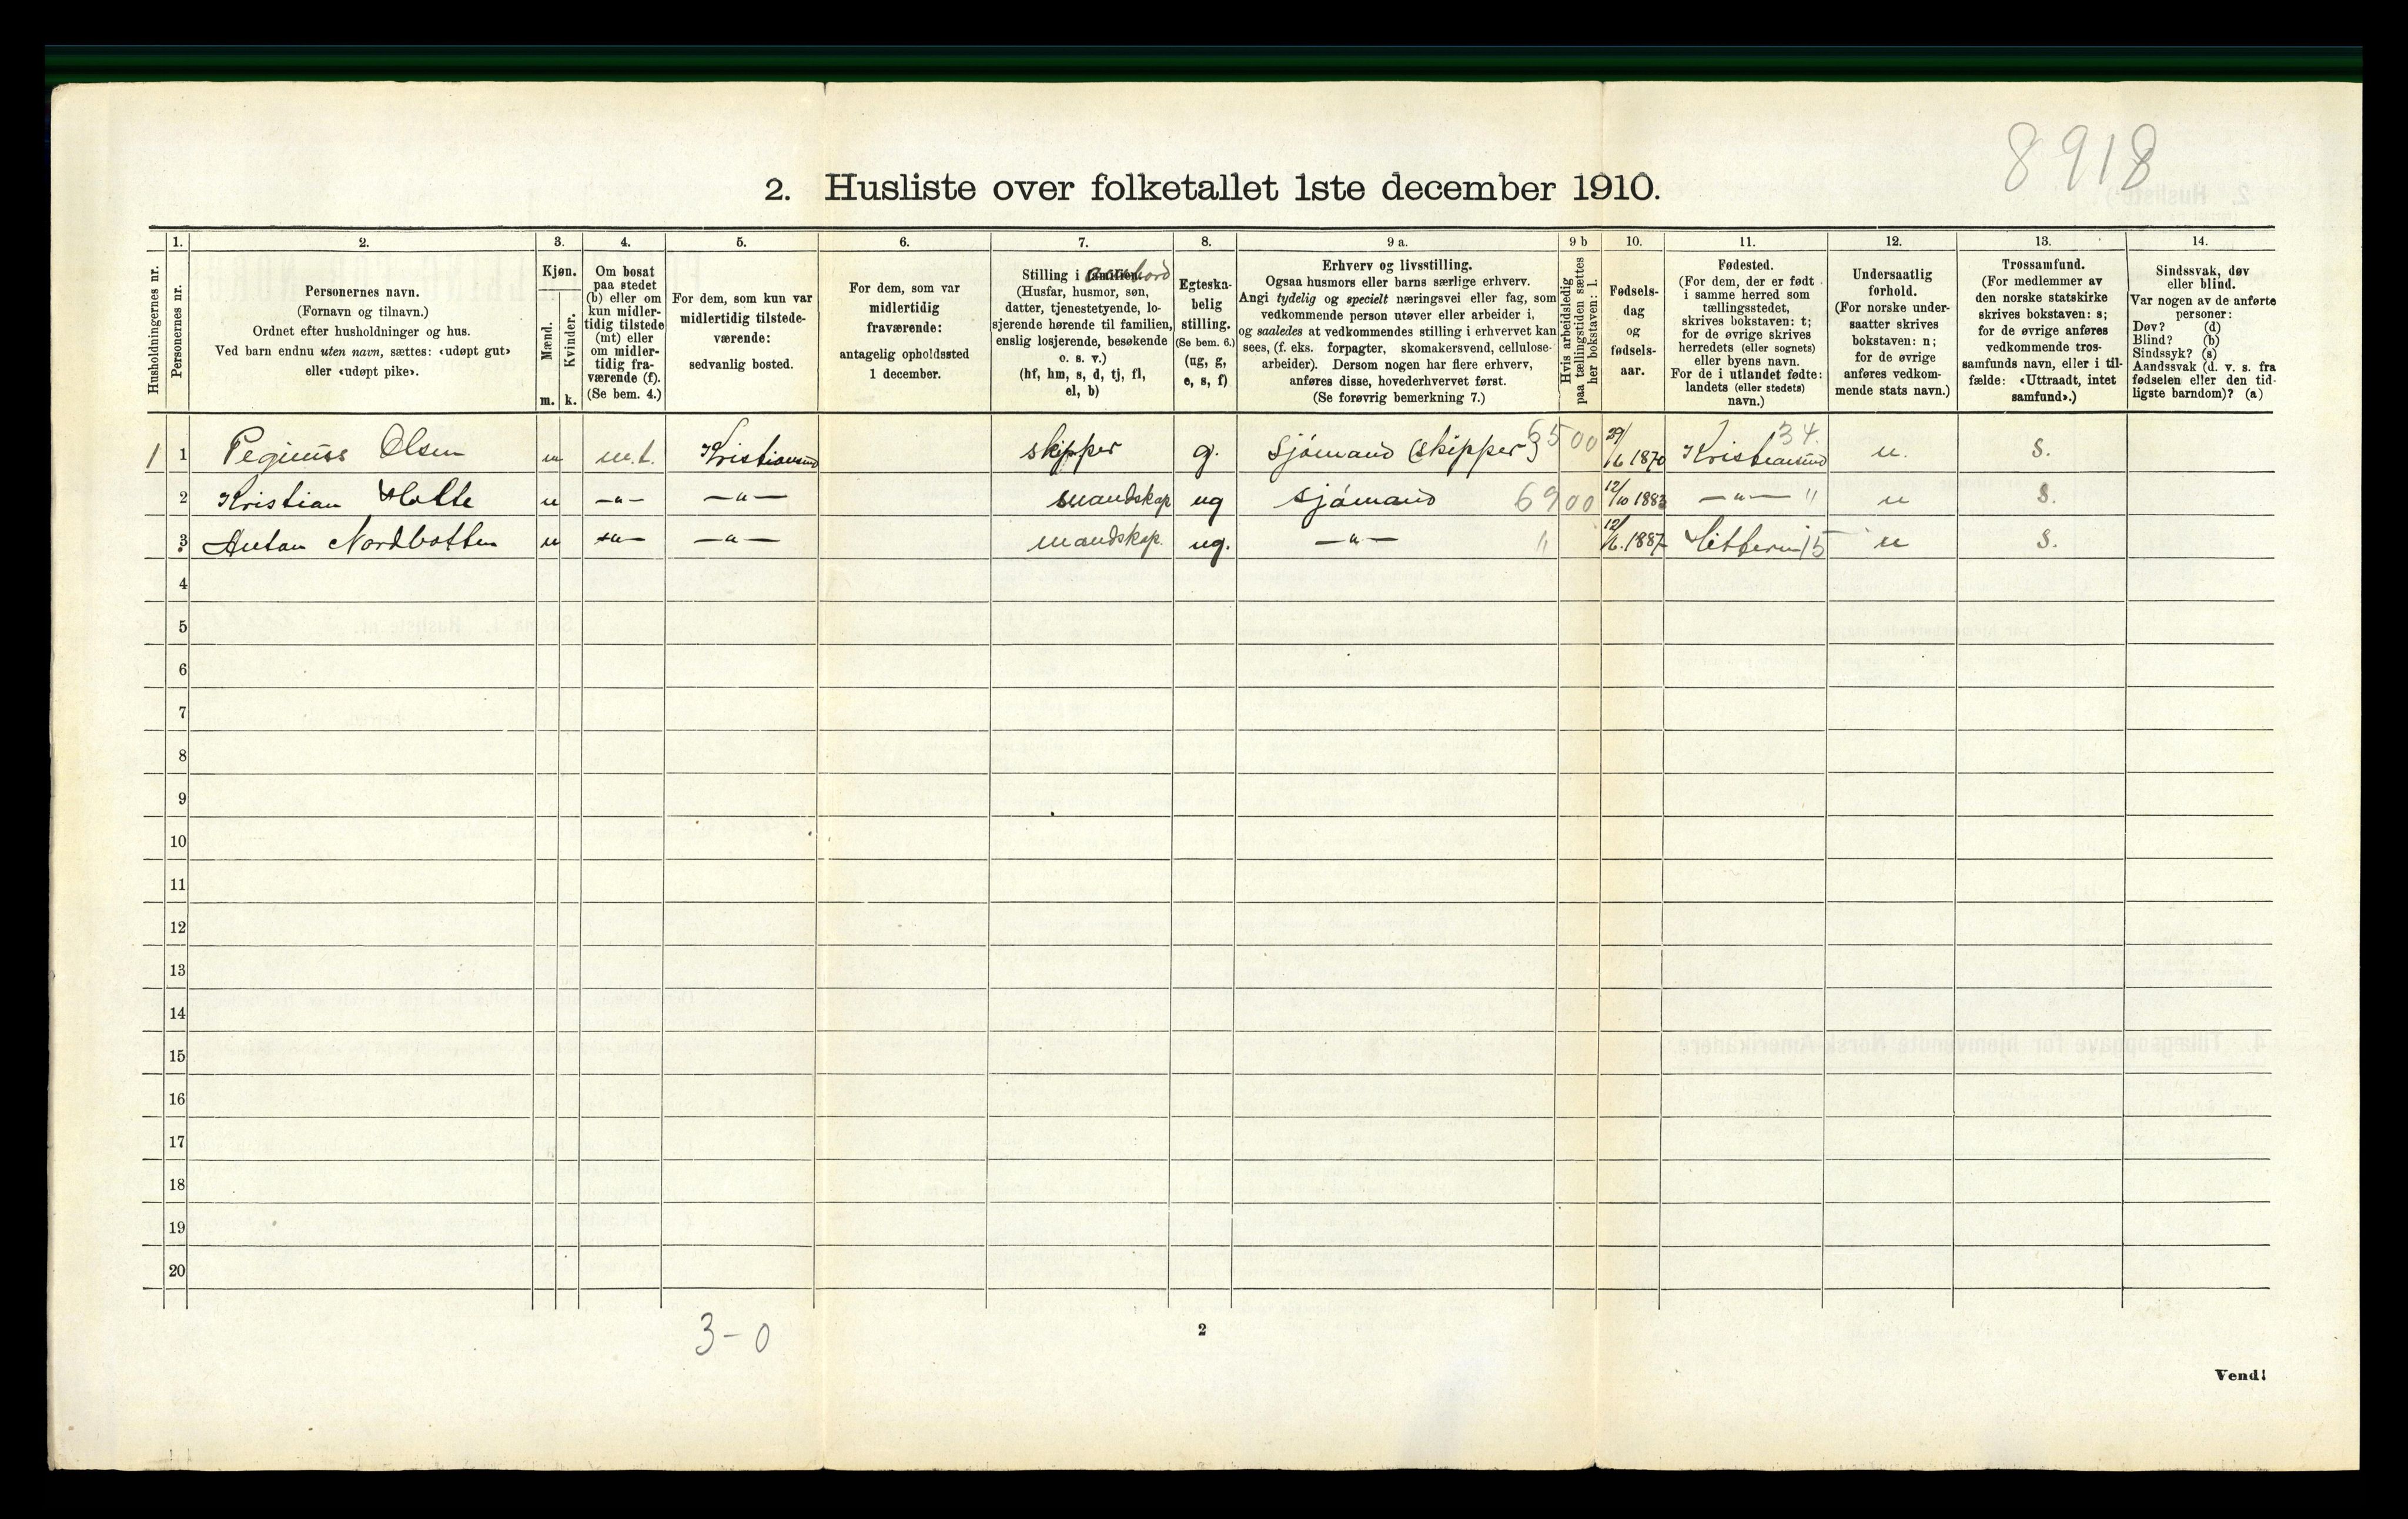 8918
2. Husliste over folketallet 1ste december 1910.
Husholdningernes nr.
1.
Personernes nr.
2.
Personernes navn.
(Fornavn og tilnavn.)
Ordnet efter husholdninger og hus.
Ved barn endnu uten navn, sættes: «udøpt gut»
eller «udøpt pike».
3.
Kjøn.
Mænd.
Kvinder.
m. k.
4.
Om bosat
paa stedet
(b) eller om
kun midler-
tidig tilstede
(mt) eller
om midler-
tidig fra-
værende (f).
(Se bem. 4.)
5.
For dem, som kun var
midlertidig tilstede-
værende:
sedvanlig bosted.
6.
For dem, som var
midlertidig
fraværende:
antagelig opholdssted
1 december.
7.
Stilling i familien ombord
(Husfar, husmor, søn,
datter, tjenestetyende, lo-
sjerende hørende til familien,
enslig losjerende, besøkende
o. s. v.)
(hf, hm, s, d, tj, fl,
el, b)
8.
Egteska-
belig
stilling.
(Se bem. 6.)
(ug, g,
e, s, f)
9 a.
Erhverv og livsstilling.
Ogsaa husmors eller barns særlige erhverv.
Angi tydelig og specielt næringsvei eller fag, som
vedkommende person utøver eller arbeider i,
og saaledes at vedkommendes stilling i erhvervet kan
sees, (f. eks. forpagter, skomakersvend, cellulose-
arbeider). Dersom nogen har flere erhverv,
anføres disse, hovederhvervet først.
(Se forøvrig bemerkning 7.)
9 b
Hvis arbeidsledig
paa tællingstiden sættes
her bokstaven: l.
10.
Fødsels-
dag
og
fødsels-
aar.
11.
Fødested.
(For dem, der er født
i samme herred som
tællingsstedet,
skrives bokstaven: t;
for de øvrige skrives
herredets (eller sognets)
eller byens navn.
For de i utlandet fødte:
landets (eller stedets)
navn.)
12.
Undersaatlig
forhold.
(For norske under-
saatter skrives
bokstaven: n;
for de øvrige
anføres vedkom-
mende stats navn.)
13.
Trossamfund.
(For medlemmer av
den norske statskirke
skrives bokstaven: s;
for de øvrige anføres
vedkommende tros-
samfunds navn, eller i til-
fælde: «Uttraadt, intet
samfund».)
14.
Sindssvak, døv
eller blind.
Var nogen av de anførte
personer:
Døv? (d)
Blind? (b)
Sindssyk? (s)
Aandssvak (d. v. s. fra
fødselen eller den tid-
ligste barndom)? (a)
1 1 Olsen m m.t. Kristiansund skipper g. sjömand (skipper) 6500 1870 Kristiansund 34. n. S.
2 Kristian Holte m —"— —"— mandskap ug sjömand 6900 12/10 1883 —"— " n S.
3 Anton Nordbotten m —"— —"— mandskap. ug. —"— " 1887 Hitteren 15 n S.
4
5
6
7
8
9
10
11
12
13
14
15
16
17
18
19
20
3-0
2
Vend!